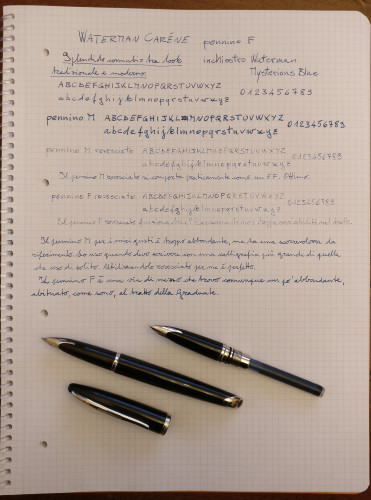 WATERMAN CARÉNE pennino F
Splendido connubio tra look inchiostro Waterman
tradizionale e moderno. Mysterious Blue
ABCDEFGHIJKLMNOPQRSTUVWXYZ
abcdefghijklmnopqrstuvwxyz 0123456789
pennino M ABCDEFGHIJKLMNOPQRSTUVWXYZ
abcdefghijklmnopqrstuvwxyz 0123456789
pennino M rovesciato ABCDEFGHIJKLMNOPQRSTUVWXYZ
abcdefghijklmnopqrstuvwxyz 0123456789
Il pennino M rovesciato si comporta praticamente come un EF. Ottimo.
pennino F rovesciato ABCDEFGHIJKLMNOPQRSTUVWXYZ
abcdefghijklmnopqrstuvwxyz 0123456789
Il pennino F rovesciato
Il pennino M per i miei gusti è troppo abbondante, ma ha una scorrevolezza da
riferimento. Lo uso quando devo scrivere con una calligrafia più grande di quella
che uso di solito. Utilizzandolo rovesciato per me è perfetto.
Il pennino F è una via di mezzo che trovo comunque un po' abbondante,
abituato, come sono, al tratto della Graduate.